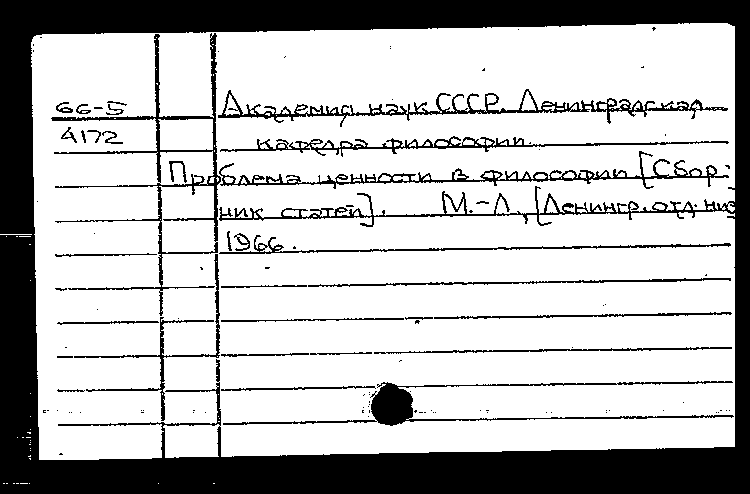 66-5 Академия наук СССР. Ленинградская
4172 кафедра философии.
Проблема ценности в философии [Сбор-
ник статей]. М.-Л., [Ленингр. отд-ние]
1966.